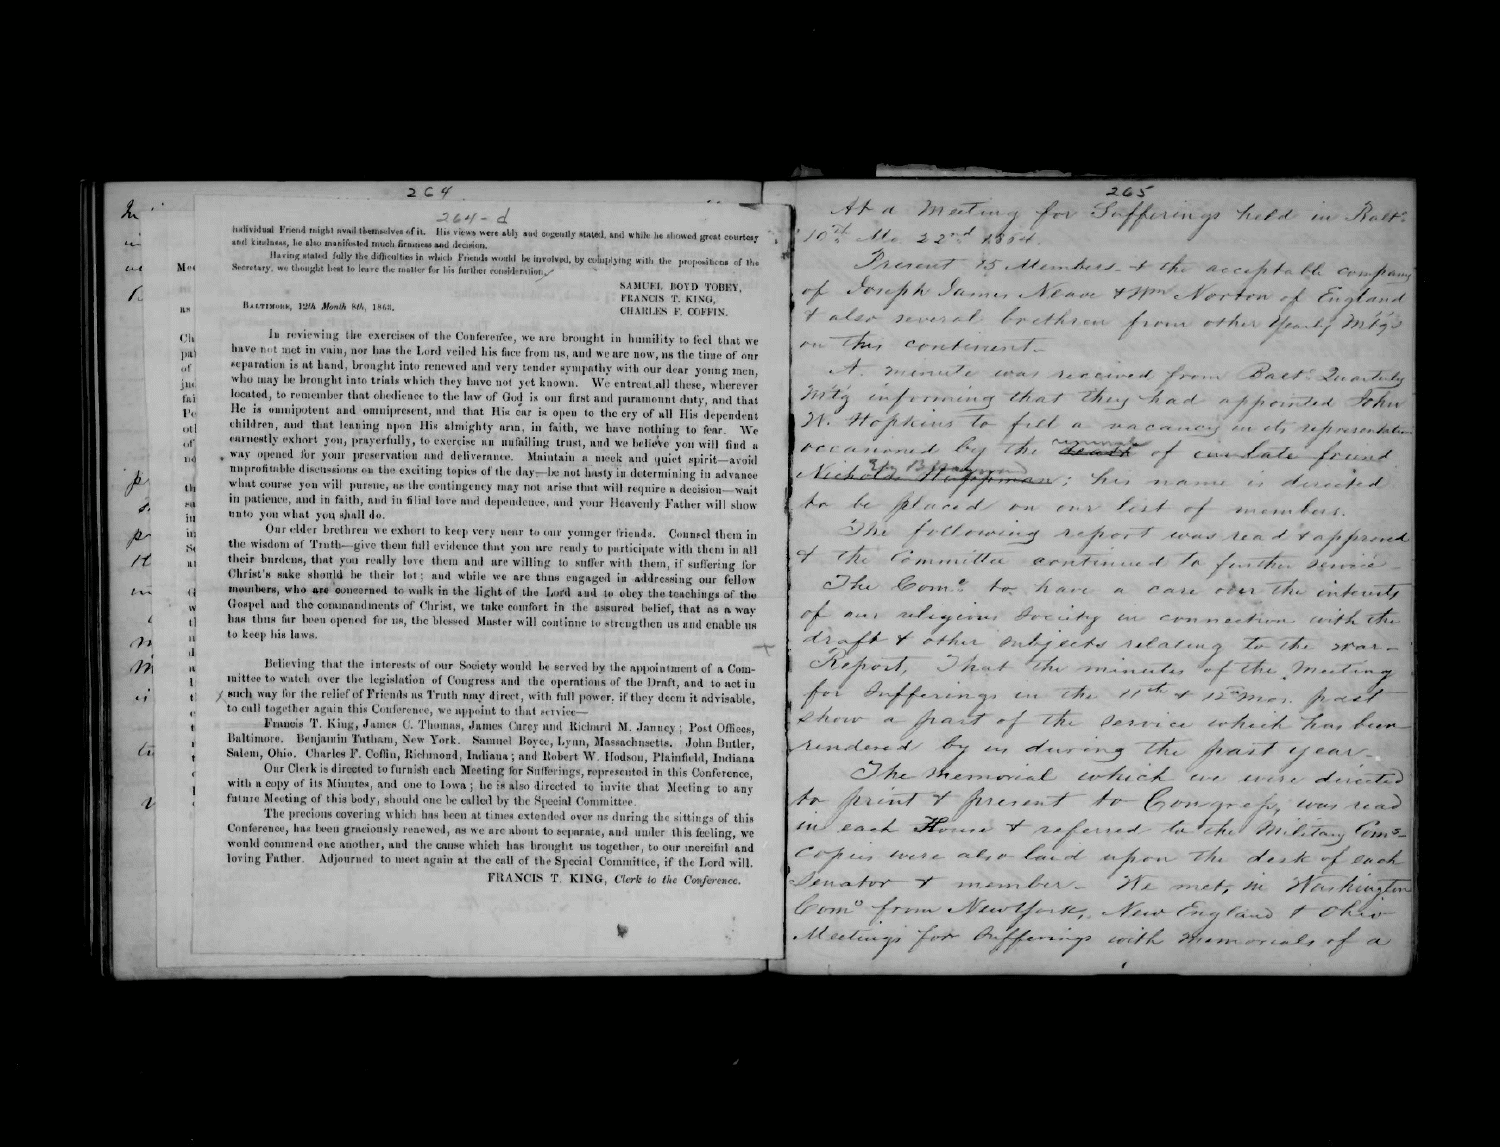 264
264-d
individual Friend might avail themselves of it. His views were ably and cogently stated, and while he showed great courtesy
and kindness, he also manifested much firmness and decision.
Having stated fully the difficulties in which Friends would be involved, by complying with the propositions of the
Secretary, we thought best to leave the matter for his further consideration.
SAMUEL BOYD TOBEY,
FRANCIS T. KING,
CHARLES F. COFFIN.
BALTIMORE, 12th Month 8th, 1863.
In reviewing the exercises of the Conference, we are brought in humility to feel that we
have not met in vain, nor has the Lord veiled his face from us, and we are now, as the time of our
separation is at hand, brought into renewed and very tender sympathy with our dear young men,
who may be brought into trials which they have not yet known. We entreat all these, wherever
located, to remember that obedience to the law of God is our first and paramount duty, and that
He is omnipotent and omnipresent, and that His ear is open to the cry of all His dependent
children, and that leaning upon His almighty arm, in faith, we have nothing to fear. We
earnestly exhort you, prayerfully, to exercise an unfailing trust, and we believe you will find a
way opened for your preservation and deliverance. Maintain a meek and quiet spirit—avoid
unprofitable discussions on the exciting topics of the day—be not hasty in determining in advance
what course you will pursue, as the contingency may not arise that will require a decision—wait
in patience, and in faith, and in filial love and dependence, and your Heavenly Father will show
unto you what you shall do.
Our elder brethren we exhort to keep very near to our younger friends. Counsel them in
the wisdom of Truth—give them full evidence that you are ready to participate with them in all
their burdens, that you really love them and are willing to suffer with them, if suffering for
Christ's sake should be their lot; and while we are thus engaged in addressing our fellow
members, who are concerned to walk in the light of the Lord and to obey the teachings of the
Gospel and the commandments of Christ, we take comfort in the assured belief, that as a way
has thus far been opened for us, the blessed Master will continue to strengthen us and enable us
to keep his laws.
Believing that the interests of our Society would be served by the appointment of a Com-
mittee to watch over the legislation of Congress and the operations of the Draft, and to act in
such way for the relief of Friends as Truth may direct, with full power, if they deem it advisable,
to call together again this Conference, we appoint to that service—
Francis T. King, James C. Thomas, James Carey and Richard M. Janney; Post Offices,
Baltimore. Benjamin Tatham, New York. Samuel Boyce, Lynn, Massachusetts. John Butler,
Salem, Ohio. Charles F. Coffin, Richmond, Indiana; and Robert W. Hodson, Plainfield, Indiana
Our Clerk is directed to furnish each Meeting for Sufferings, represented in this Conference,
with a copy of its Minutes, and one to Iowa; he is also directed to invite that Meeting to any
future Meeting of this body, should one be called by the Special Committee.
The precious covering which has been at times extended over us during the sittings of this
Conference, has been graciously renewed, as we are about to separate, and under this feeling, we
would commend one another, and the cause which has brought us together, to our merciful and
loving Father. Adjourned to meet again at the call of the Special Committee, if the Lord will.
FRANCIS T. KING, Clerk to the Conference.
265
At a Meeting for Sufferings held in Balto
10th Mo 22nd 1864.
Present 15 Members & the acceptable company
of Joseph James Neave & Wm Norton of England
& also several brethren from other Yearly Mtgs
on this continent
A minute was received from Balto Quarterly
Mtg informing that they had appointed John
W. Hopkins to fill a vacancy in its representation
occasioned by the death of our late friend
Nicholas : his name is directed
to be placed on our list of members.
The following report was read & approved
& the Committee continued to further service
The Come to have a care over the interests
of our religious Society in connection with the
draft & other subjects relating to the war-
Report, That the minutes of the Meeting
for Sufferings in the 11th & 12 Mos. past
show a part of the service which has been
rendered by us during the past year-
The Memorial which we were directed
to print & present to Congress, was read
in each House & referred to the Military Coms-
copies were also laid upon the desk of each
Senator & member- We met, in Washington
Come from New York, New England & Ohio
Meetings for Sufferings with memorials of a